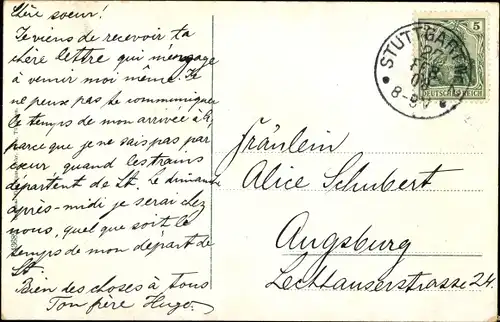 Chère soeur!
Je viens de recevoir ta
chère lettre qui m'engage
à venir moi même. Je
ne peux pas te communiquer
le temps de mon arrivée à A.
parce que je ne sais pas par
cœur quand les trains
départent de St. Le dimanche
après-midi je serai chez
nous, quel que soit le
temps de mon départ de
St.
Bien des choses à tous
Ton frère Hugo.
STUTTGART
20
FEB
8-9
5
DEUTSCHES REICH
Fräulein
Alice Schubert
Augsburg
Lechhauserstrasse 24.